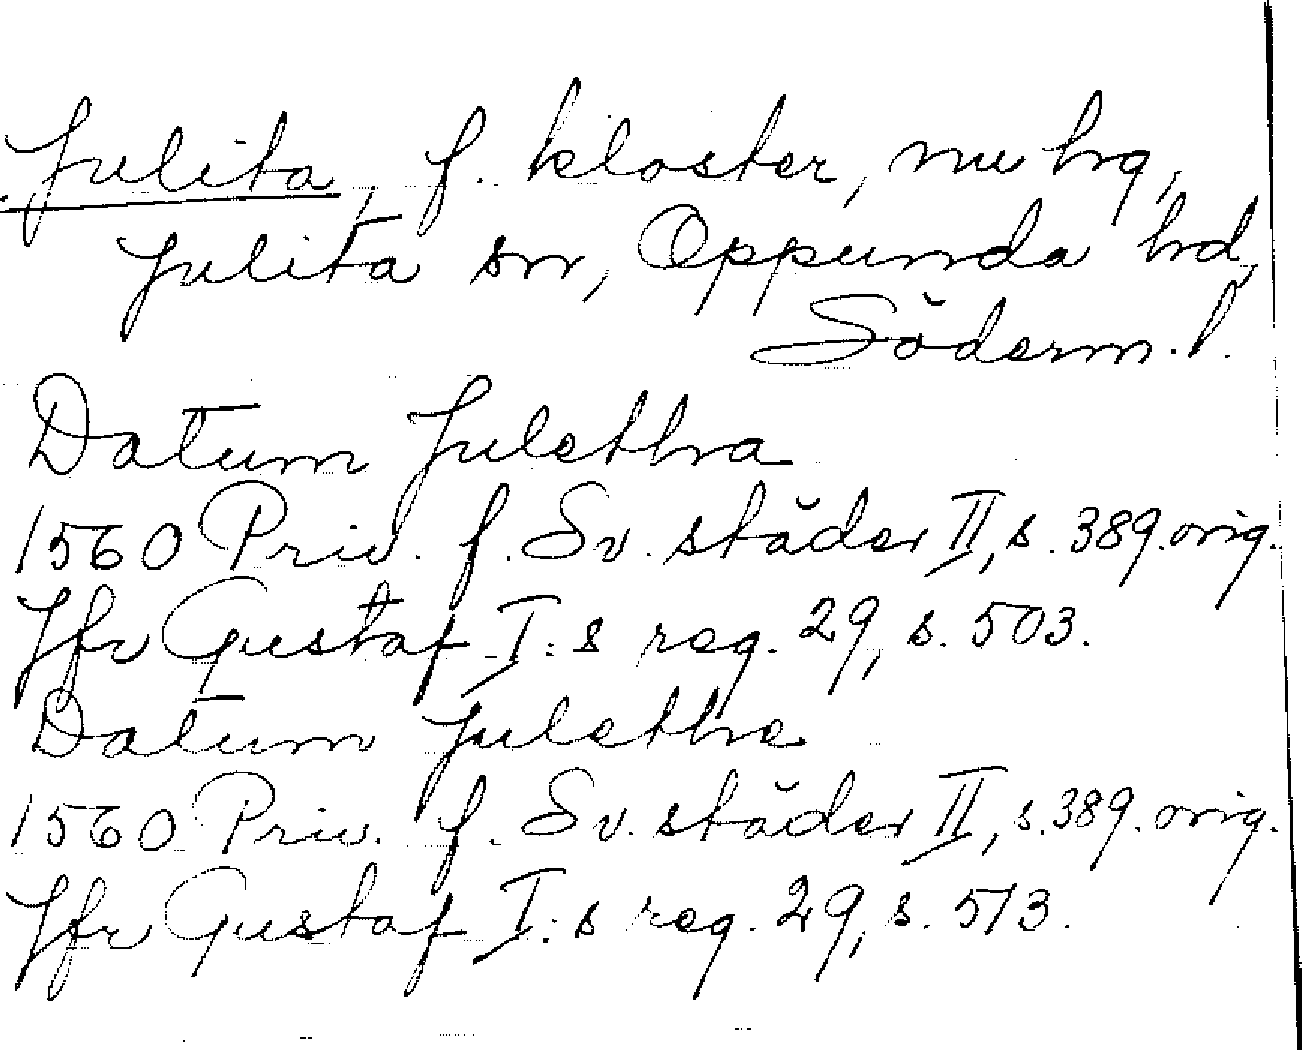 Julita, f. kloster, nu hg,
Julita sn, Oppunda hd,
Söderm. l.
Datum Juletha
1560 Priv. f. Sv. städer II, s. 389. orig.
Jfr Gustaf I:s reg. 29, s. 503.
Datum Julethe
1560 Priv. f. Sv. städer II, s. 389. orig.
Jfr Gustaf I:s reg. 29, s. 513.